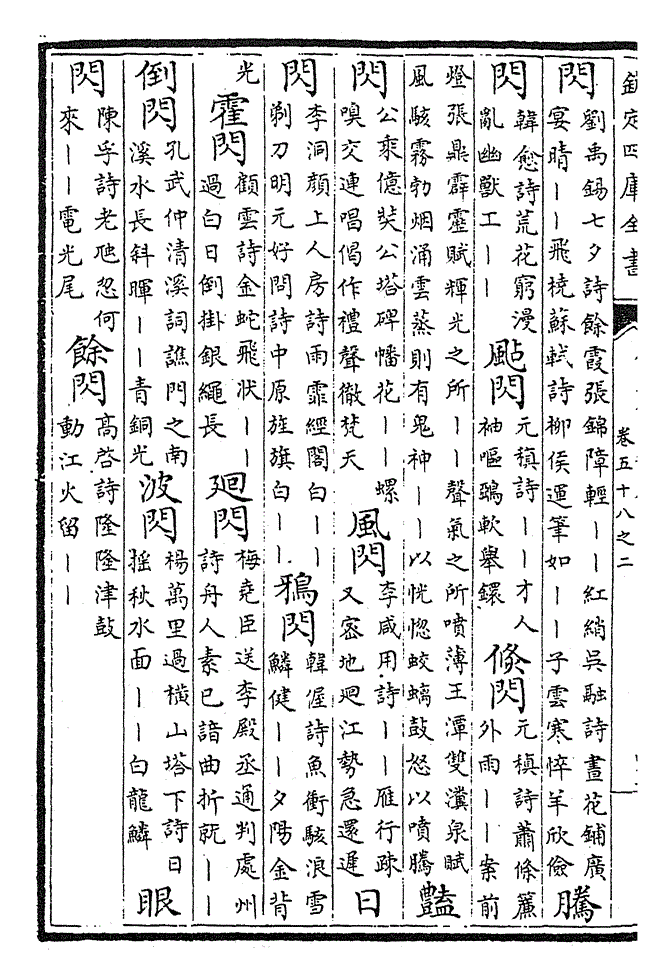 欽定四庫全書
卷五十八之二
閃
劉禹錫七夕詩餘霞張錦障輕丨丨紅綃吳融詩晝花鋪廣
宴晴丨丨飛橈蘇軾詩柳侯運筆如丨丨子雲寒悴羊欣儉
騰
閃
韓愈詩荒花窮漫
亂幽獸工丨丨
颭閃
元稹詩丨丨才人
袖嘔鵶軟舉鐶
倐閃
元稹詩蕭條簾
外雨丨丨案前
燈張鼎霹靂賦輝光之所丨丨聲氣之所噴薄王潭雙瀵泉賦
風駭霧勃烟涌雲蒸則有鬼神丨丨以恍惚蛟螭鼓怒以噴騰
豔
閃
公乘億奘公塔碑幡花丨丨螺
嗅交連唱偈作禮聲徹梵天
風閃
李咸用詩丨丨雁行疎
又密地廻江勢急還遲
日
閃
李洞顔上人房詩雨霏經閣白丨丨
剃刀明元好問詩中原旌旗白丨丨
鴉閃
韓偓詩魚衝駭浪雪
鱗健丨丨夕陽金背
光
霍閃
顧雲詩金蛇飛狀丨丨
過白日倒掛銀繩長
廻閃
梅堯臣送李殿丞通判處州
詩舟人素已諳曲折脫丨丨
倒閃
孔武仲清溪詞譙門之南
溪水長斜暉丨丨青銅光
波閃
楊萬里過橫山塔下詩日
摇秋水面丨丨白龍鱗
眼
閃
陳孚詩老虺忽何
來丨丨電光尾
餘閃
高啓詩隆隆津鼓
動江火留丨丨